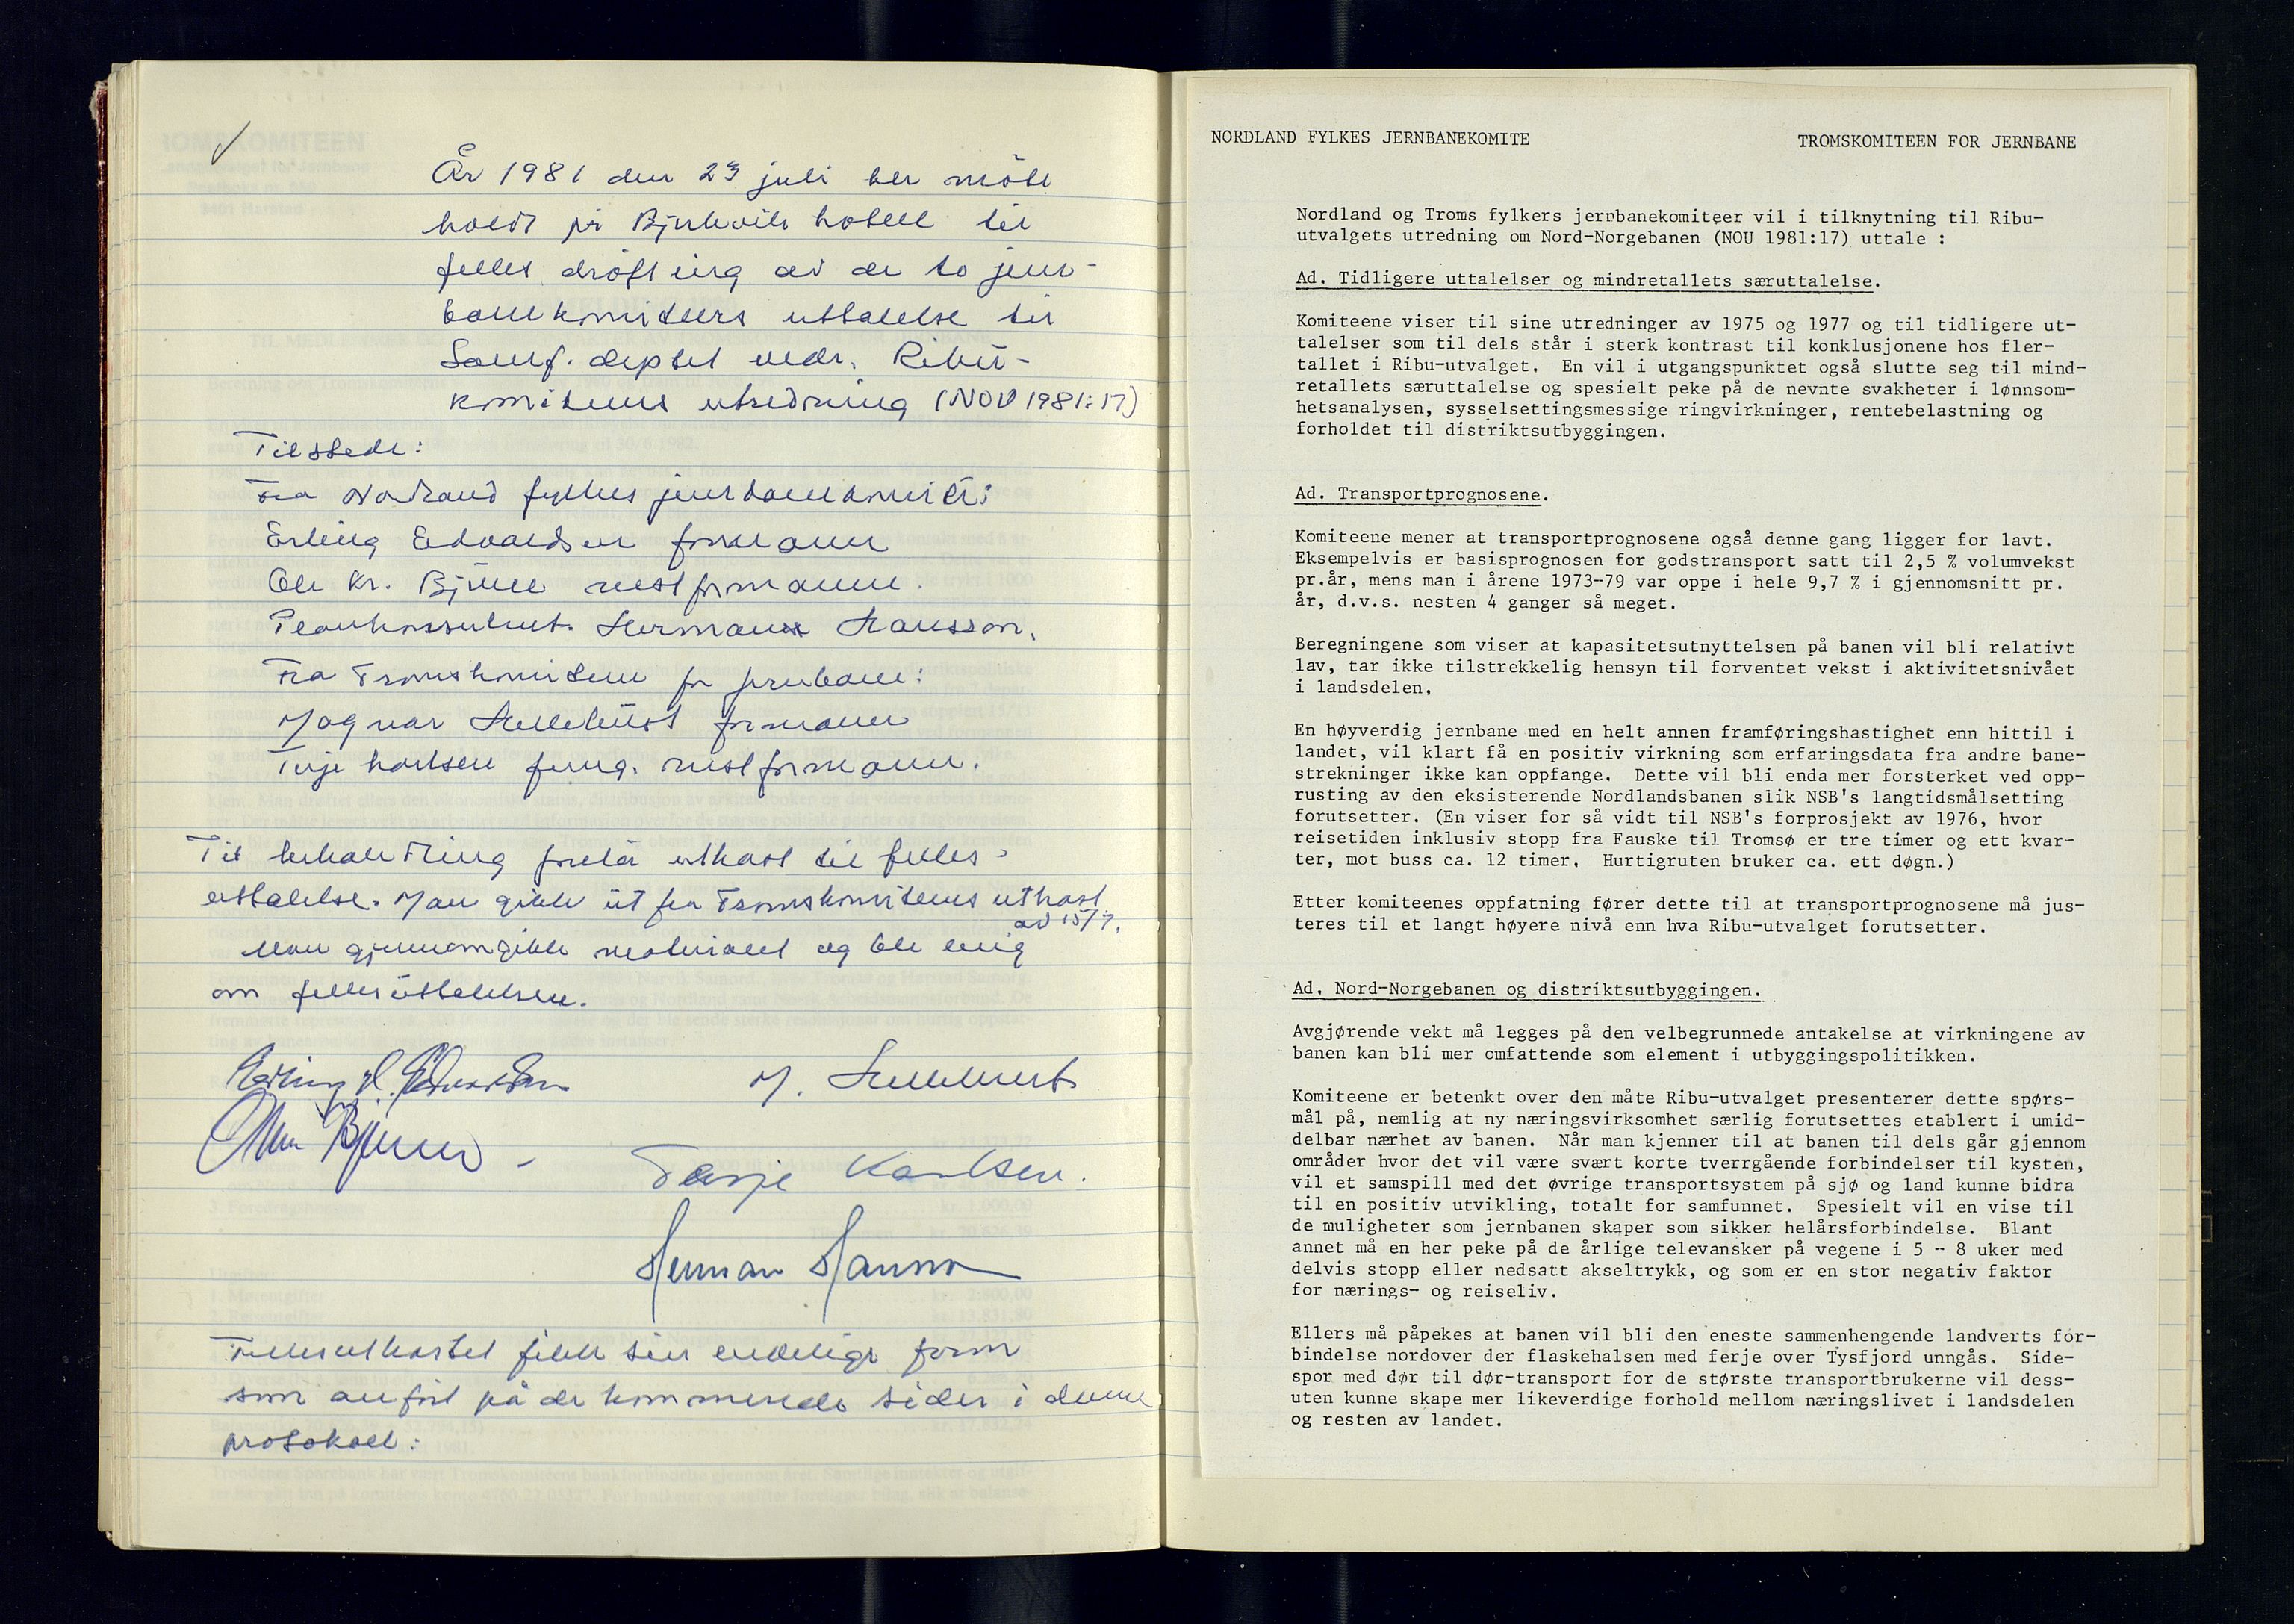 År 1981 den 23 juli ble möte
holdt på Bjerkvik hotell til
felles dröfting av de to jern-
banekomiteers uttalelse til
Samf. deptet vedr. Ribu-
komiteens utredning (NOU 1981:17)
Tilstede:
Fra Nordland fylkes jernbanekomite:
Erling Edvardsen formann
Ole Kr. Bjerke nestformann.
Plankonsulent Herman Hansson.
Fra Tromskomiteen for jernbane:
Magnar Hellebust formann
Terje Karlsen fung. nestformann.
Til behandling forelå utkast til felles-
uttalelse. Man gikk ut fra Tromskomiteens utkast
av 15/7.
Man gjennomgikk materialet og ble enig
om fellesuttalelsen.
Erling Edvardsen
M. Hellebust
Terje Karlsen.
Herman Hansson
Fellesutkastet fikk sin endelige form
som anfört på de kommende sider i denne
protokoll:
NORDLAND FYLKES JERNBANEKOMITE TROMSKOMITEEN FOR JERNBANE
Nordland og Troms fylkers jernbanekomiteer vil i tilknytning til Ribu-
utvalgets utredning om Nord-Norgebanen (NOU 1981:17) uttale :
Ad. Tidligere uttalelser og mindretallets særuttalelse.
Komiteene viser til sine utredninger av 1975 og 1977 og til tidligere ut-
talelser som til dels står i sterk kontrast til konklusjonene hos fler-
tallet i Ribu-utvalget. En vil i utgangspunktet også slutte seg til mind-
retallets særuttalelse og spesielt peke på de nevnte svakheter i lønnsom-
hetsanalysen, sysselsettingsmessige ringvirkninger, rentebelastning og
forholdet til distriktsutbyggingen.
Ad. Transportprognosene.
Komiteene mener at transportprognosene også denne gang ligger for lavt.
Eksempelvis er basisprognosen for godstransport satt til 2,5 % volumvekst
pr.år, mens man i årene 1973-79 var oppe i hele 9,7 % i gjennomsnitt pr.
år, d.v.s. nesten 4 ganger så meget.
Beregningene som viser at kapasitetsutnyttelsen på banen vil bli relativt
lav, tar ikke tilstrekkelig hensyn til forventet vekst i aktivitetsnivået
i landsdelen.
En høyverdig jernbane med en helt annen framføringshastighet enn hittil i
landet, vil klart få en positiv virkning som erfaringsdata fra andre bane-
strekninger ikke kan oppfange. Dette vil bli enda mer forsterket ved opp-
rusting av den eksisterende Nordlandsbanen slik NSB's langtidsmålsetting
forutsetter. (En viser for så vidt til NSB's forprosjekt av 1976, hvor
reisetiden inklusiv stopp fra Fauske til Tromsø er tre timer og ett kvar-
ter, mot buss ca. 12 timer. Hurtigruten bruker ca. ett døgn.)
Etter komiteenes oppfatning fører dette til at transportprognosene må jus-
teres til et langt høyere nivå enn hva Ribu-utvalget forutsetter.
Ad. Nord-Norgebanen og distriktsutbyggingen.
Avgjørende vekt må legges på den velbegrunnede antakelse at virkningene av
banen kan bli mer omfattende som element i utbyggingspolitikken.
Komiteene er betenkt over den måte Ribu-utvalget presenterer dette spørs-
mål på, nemlig at ny næringsvirksomhet særlig forutsettes etablert i umid-
delbar nærhet av banen. Når man kjenner til at banen til dels går gjennom
områder hvor det vil være svært korte tverrgående forbindelser til kysten,
vil et samspill med det øvrige transportsystem på sjø og land kunne bidra
til en positiv utvikling, totalt for samfunnet. Spesielt vil en vise til
de muligheter som jernbanen skaper som sikker helårsforbindelse. Blant
annet må en her peke på de årlige televansker på vegene i 5 - 8 uker med
delvis stopp eller nedsatt akseltrykk, og som er en stor negativ faktor
for nærings- og reiseliv.
Ellers må påpekes at banen vil bli den eneste sammenhengende landverts for-
bindelse nordover der flaskehalsen med ferje over Tysfjord unngås. Side-
spor med dør til dør-transport for de største transportbrukerne vil dess-
uten kunne skape mer likeverdige forhold mellom næringslivet i landsdelen
og resten av landet.